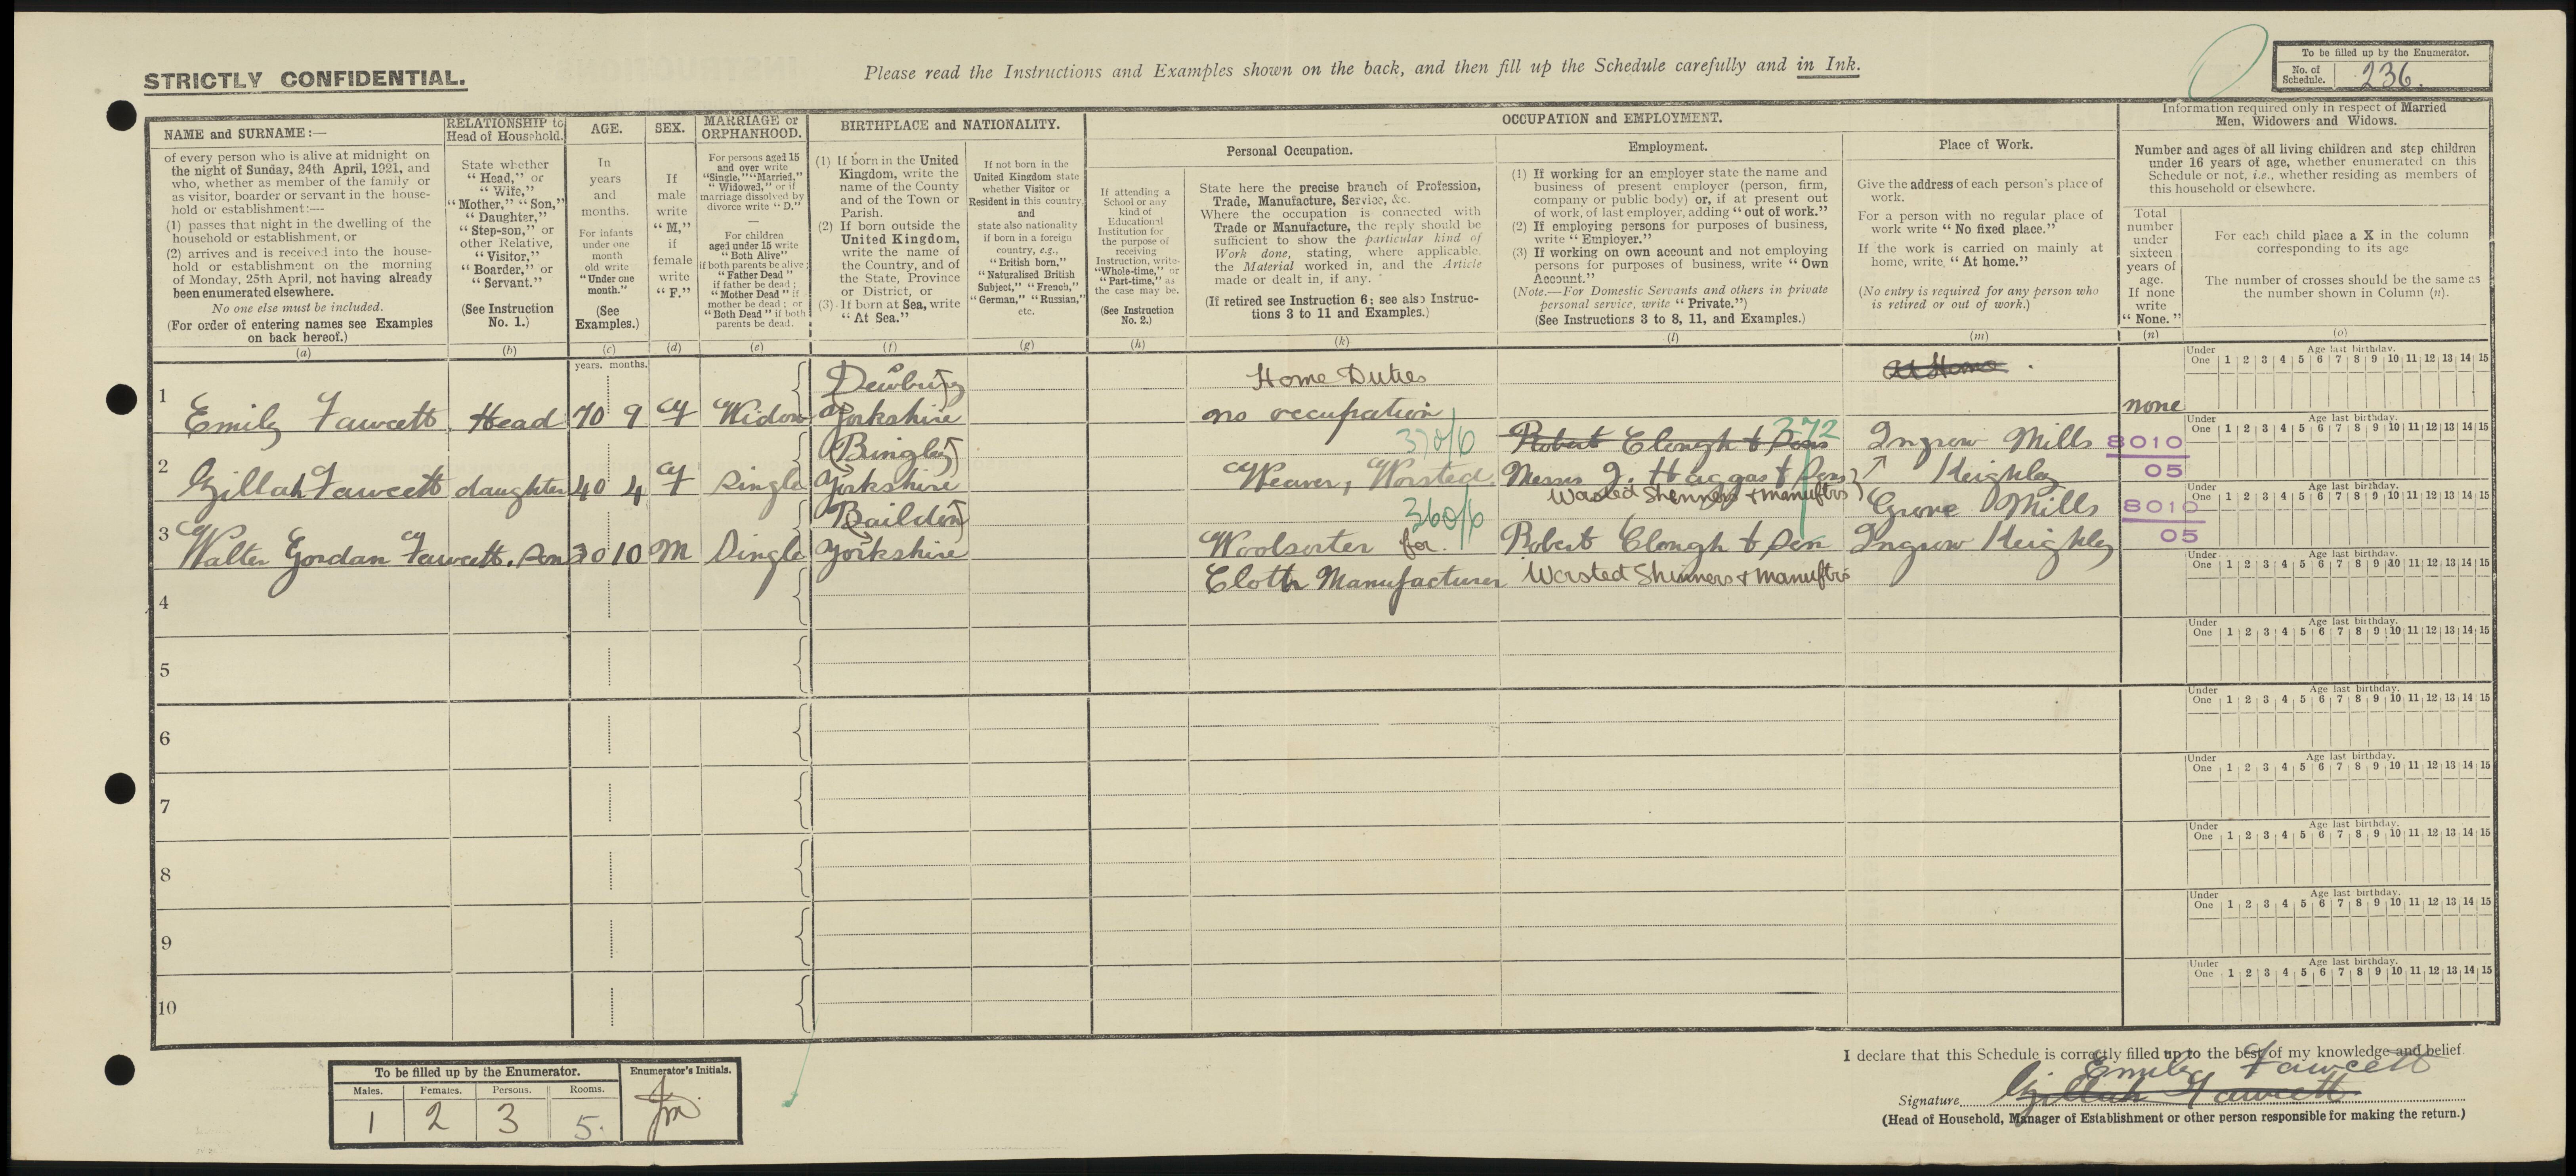 STRICTLY CONFIDENTIAL.
Please read the Instructions and Examples shown on the back, and then fill up the Schedule carefully and in Ink.
To be filled up by the Enumerator.
No. of Schedule. 236.
NAME and SURNAME:—
of every person who is alive at midnight on
the night of Sunday, 24th April, 1921, and
who, whether as member of the family or
as visitor, boarder or servant in the house-
hold or establishment:—
(1) passes that night in the dwelling of the
household or establishment, or
(2) arrives and is received into the house-
hold or establishment on the morning
of Monday, 25th April, not having already
been enumerated elsewhere.
No one else must be included.
(For order of entering names see Examples
on back hereof.)
(a)
RELATIONSHIP to
Head of Household.
State whether
"Head," or
"Wife,"
"Mother," "Son,"
"Daughter,"
"Step-son," or
other Relative,
"Visitor,"
"Boarder," or
"Servant."
(See Instruction
No. 1.)
(b)
AGE.
In
years
and
months.
For infants
under one
month
old write
"Under one
month."
(See
Examples.)
(c)
SEX.
If
male
write
"M,"
if
female
write
"F."
(d)
MARRIAGE or
ORPHANHOOD.
For persons aged 15
and over write
"Single," "Married,"
"Widowed," or if
marriage dissolved by
divorce write "D."
—
For children
aged under 15 write
"Both Alive"
if both parents be alive;
"Father Dead"
if father be dead;
"Mother Dead" if
mother be dead; or
"Both Dead" if both
parents be dead.
(e)
BIRTHPLACE and NATIONALITY.
(1) If born in the United
Kingdom, write the
name of the County
and of the Town or
Parish.
(2) If born outside the
United Kingdom,
write the name of
the Country, and of
the State, Province
or District, or
(3) If born at Sea, write
"At Sea."
(f)
If not born in the
United Kingdom state
whether Visitor or
Resident in this country,
and
state also nationality
if born in a foreign
country, e.g.,
"British born,"
"Naturalised British
Subject," "French,"
"German," "Russian,"
etc.
(g)
OCCUPATION and EMPLOYMENT.
If attending a
School or any
kind of
Educational
Institution for
the purpose of
receiving
Instruction, write
"Whole-time," or
"Part-time," as
the case may be.
(See Instruction
No. 2.)
(h)
Personal Occupation.
State here the precise branch of Profession,
Trade, Manufacture, Service, &c.
Where the occupation is connected with
Trade or Manufacture, the reply should be
sufficient to show the particular kind of
Work done, stating, where applicable,
the Material worked in, and the Article
made or dealt in, if any.
(If retired see Instruction 6; see also Instruc-
tions 3 to 11 and Examples.)
(k)
Employment.
(1) If working for an employer state the name and
business of present employer (person, firm,
company or public body) or, if at present out
of work, of last employer, adding "out of work."
(2) If employing persons for purposes of business,
write "Employer."
(3) If working on own account and not employing
persons for purposes of business, write "Own
Account."
(Note.—For Domestic Servants and others in private
personal service, write "Private.")
(See Instructions 3 to 8, 11, and Examples.)
(l)
Place of Work.
Give the address of each person's place of
work.
For a person with no regular place of
work write "No fixed place."
If the work is carried on mainly at
home, write "At home."
(No entry is required for any person who
is retired or out of work.)
(m)
Information required only in respect of Married
Men, Widowers and Widows.
Number and ages of all living children and step children
under 16 years of age, whether enumerated on this
Schedule or not, i.e., whether residing as members of
this household or elsewhere.
Total
number
under
sixteen
years of
age.
If none
write
"None."
(n)
For each child place a X in the column
corresponding to its age
The number of crosses should be the same as
the number shown in Column (n).
(o)
years. months.
Under One
Age last birthday.
1 2 3 4 5 6 7 8 9 10 11 12 13 14 15
Dewbury Home Duties At Home
1 Emily Fawcett Head 70 9 F Widow Yorkshire no occupation none
Under One
Age last birthday.
1 2 3 4 5 6 7 8 9 10 11 12 13 14 15
(Bingley) 370/6 Robert Clough & Sons 372 Ingrow Mills 8010
2 Zillah Fawcett daughter 40 4 F Single Yorkshire Weaver, Worsted. Messrs J. Haggas & Sons Keighley 05
Worsted Spinners & Manuftrs
Under One
Age last birthday.
1 2 3 4 5 6 7 8 9 10 11 12 13 14 15
(Baildon) 360/6 Grove Mills 8010
3 Walter Gordan Fawcett. Son 30 10 M Single Yorkshire Woolsorter for Robert Clough & Son Ingrow Keighley 05
Cloth Manufacturer Worsted Spinners & Manuftrs
4
Under One
Age last birthday.
1 2 3 4 5 6 7 8 9 10 11 12 13 14 15
5
Under One
Age last birthday.
1 2 3 4 5 6 7 8 9 10 11 12 13 14 15
6
Under One
Age last birthday.
1 2 3 4 5 6 7 8 9 10 11 12 13 14 15
7
Under One
Age last birthday.
1 2 3 4 5 6 7 8 9 10 11 12 13 14 15
8
Under One
Age last birthday.
1 2 3 4 5 6 7 8 9 10 11 12 13 14 15
9
Under One
Age last birthday.
1 2 3 4 5 6 7 8 9 10 11 12 13 14 15
10
Under One
Age last birthday.
1 2 3 4 5 6 7 8 9 10 11 12 13 14 15
To be filled up by the Enumerator.
Males. Females. Persons. Rooms.
1 2 3 5.
Enumerator's Initials.
I declare that this Schedule is correctly filled up to the best of my knowledge and belief.
Emily Fawcett
Signature Zillah Fawcett
(Head of Household, Manager of Establishment or other person responsible for making the return.)